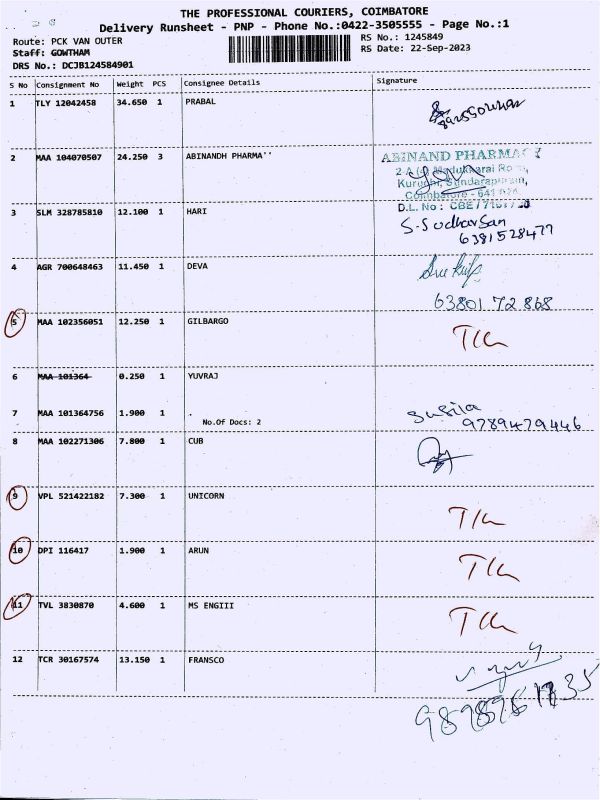 THE PROFESSIONAL COURIERS, COIMBATORE
Delivery Runsheet - PNP - Phone No.:0422-3505555 - Page No.:1
Route: PCK VAN OUTER
RS No.: 1245849
Staff: GOWTHAM
RS Date: 22-Sep-2023
DRS No.: DCJB124584901
S No Consignment No Weight PCS Consignee Details Signature
1 TLY 12042458 34.650 1 PRABAL
2 MAA 104070507 24.250 3 ABINANDH PHARMA''
ABINAND PHARMACY
Kuruchi, Sundarapuram,
Coimbatore - 641 024
D.L. No : CBE/
3 SLM 328785810 12.100 1 HARI
S-Sudharsan
6381528477
4 AGR 700648463 11.450 1 DEVA
63801 72 868
5 MAA 102356051 12.250 1 GILBARGO
6 MAA 101364 0.250 1 YUVRAJ
7 MAA 101364756 1.900 1 .
No.Of Docs: 2
Susila
9789479446
8 MAA 102271306 7.800 1 CUB
9 VPL 521422182 7.300 1 UNICORN
10 DPI 116417 1.900 1 ARUN
11 TVL 3830870 4.600 1 MS ENGIII
12 TCR 30167574 13.150 1 FRANSCO